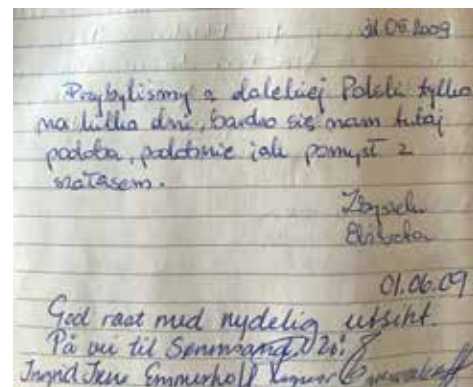 31.05.2009
Przybyliśmy z dalekiej Polski tylko
na kilka dni, bardzo się nam tutaj
podoba, podobnie jak pomysł z
szałasem.
Zbyszek
Elżbieta
01.06.09
God rast med nydelig utsikt.
På vei til
Ingrid Irene Emmerhoff